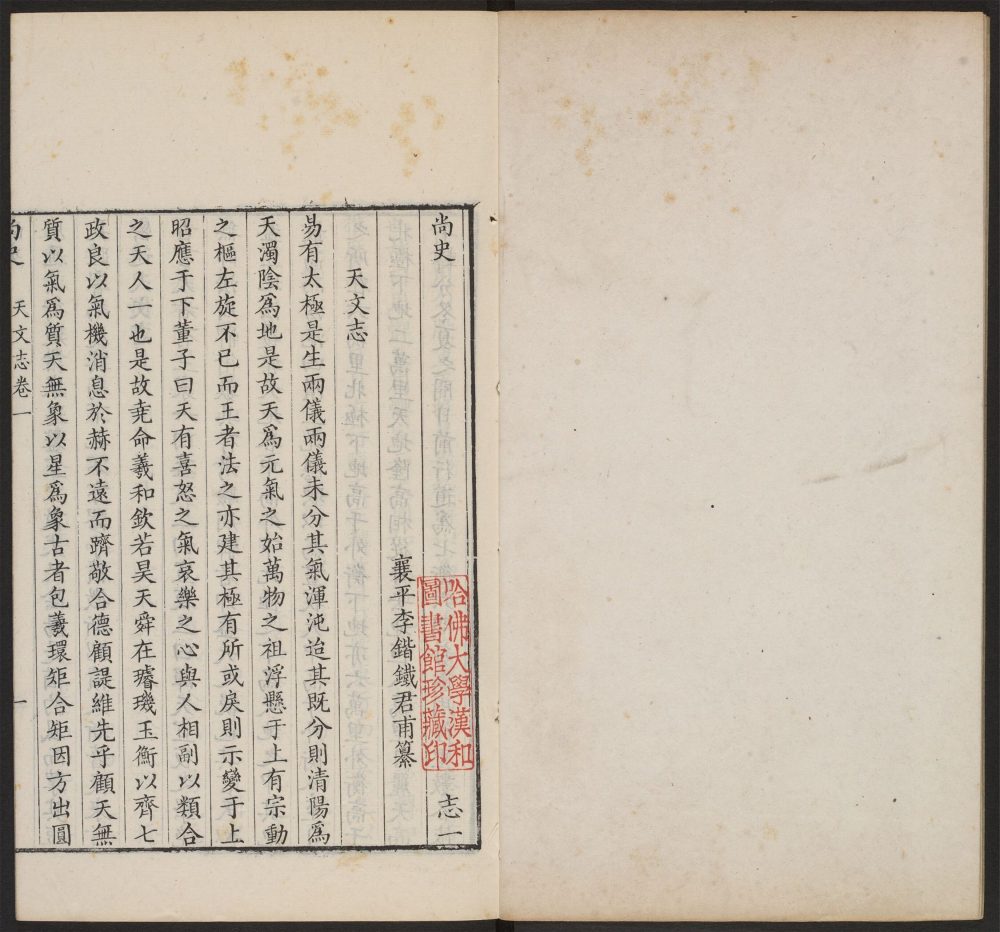 尚史
志一
襄平李鍇鐵君甫纂
哈佛大學漢和
圖書館珍藏印
天文志
易有太極是生兩儀兩儀未分其氣渾沌迨其既分則清陽爲
天濁陰爲地是故天爲元氣之始萬物之祖浮懸于上有宗動
之樞左旋不已而王者法之亦建其極有所或戾則示變于上
昭應于下董子曰天有喜怒之氣哀樂之心與人相副以類合
之天人一也是故堯命羲和欽若昊天舜在璿璣玉衡以齊七
政良以氣機消息於赫不遠而躋敬合德顧諟維先乎顧天無
質以氣爲質天無象以星爲象古者包羲環矩合矩因方出圓
尚史
天文志卷一
一